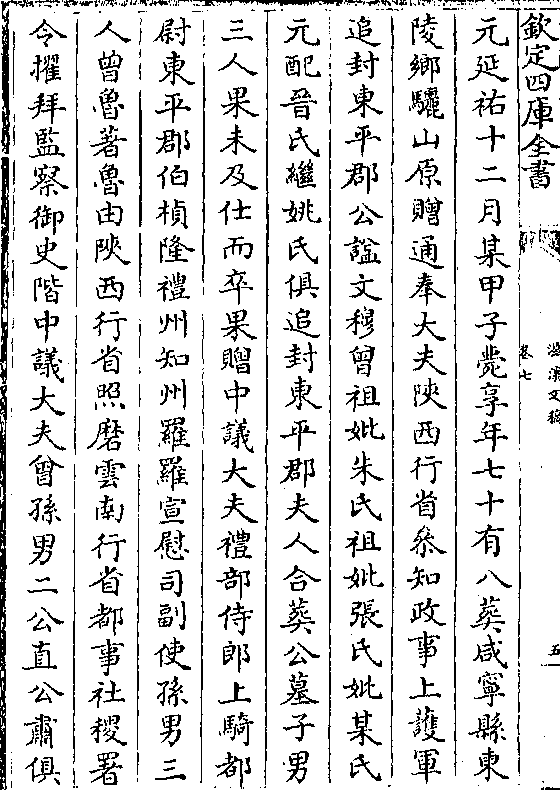 欽定四庫全書
卷七
五
元延祐十二月某甲子薨享年七十有八葬咸寧縣東
陵鄉驪山原贈通奉大夫陝西行省叅知政事上護軍
追封東平郡公諡文穆曾祖妣朱氏祖妣張氏妣某氏
元配晉氏繼姚氏俱追封東平郡夫人合葬公墓子男
三人果未及仕而卒果贈中議大夫禮部侍郎上騎都
尉東平郡伯楨隆禮州知州羅羅宣慰司副使孫男三
人曾魯著魯由陝西行省照磨雲南行省都事社稷署
令擢拜監察御史階中議大夫曾孫男二公直公肅俱